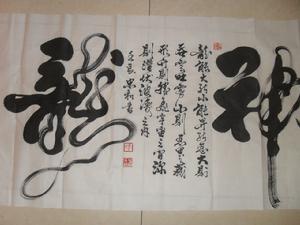 神
龍能大能小能升能隐大則
興雲吐霧小則隐介藏
形升則騰宇宙之間隐
則潛伏波濤之内
書
龍